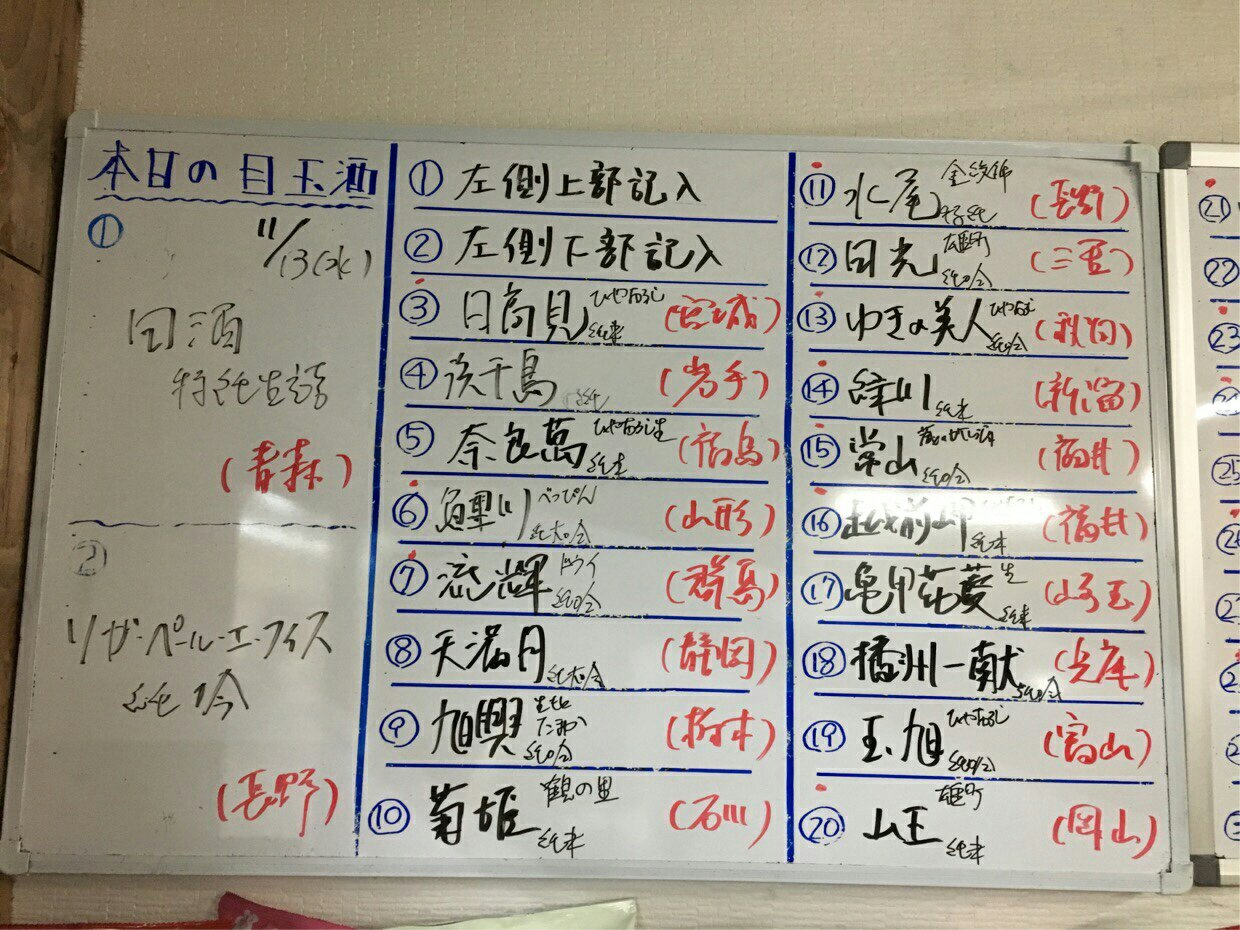 本日の目玉酒
①
11/13(水)
田酒
特純生詰
(青森)
②
リガ・ペール・エ・フィス
純吟
(長野)
① 左側上部記入
② 左側下部記入
③ 日高見 ひやおろし 純米 (宮城)
④ 浜千鳥 純 (岩手)
⑤ 奈良萬 ひやおろし生 純米 (福島)
⑥ 鯉川 べっぴん 純大吟 (山形)
⑦ 流輝 純吟 (群馬)
⑧ 天満月 純大吟 (静岡)
⑨ 旭興 生酛 たまか 純吟 (栃木)
⑩ 菊姫 鶴の里 純米 (石川)
⑪ 水尾 金紋錦 特純 (長野)
⑫ 田光 雄町 純吟 (三重)
⑬ ゆきの美人 ひやおろし 純吟 (秋田)
⑭ 緑川 純米 (新潟)
⑮ 常山 純吟 (福井)
⑯ 越前岬 ひやおろし 純米 (福井)
⑰ 亀甲花菱 生 純米 (埼玉)
⑱ 播州一献 純吟 (兵庫)
⑲ 玉旭 ひやおろし 純吟 (富山)
⑳ 山王 雄町 純米 (岡山)
㉑
㉒
㉓
㉕